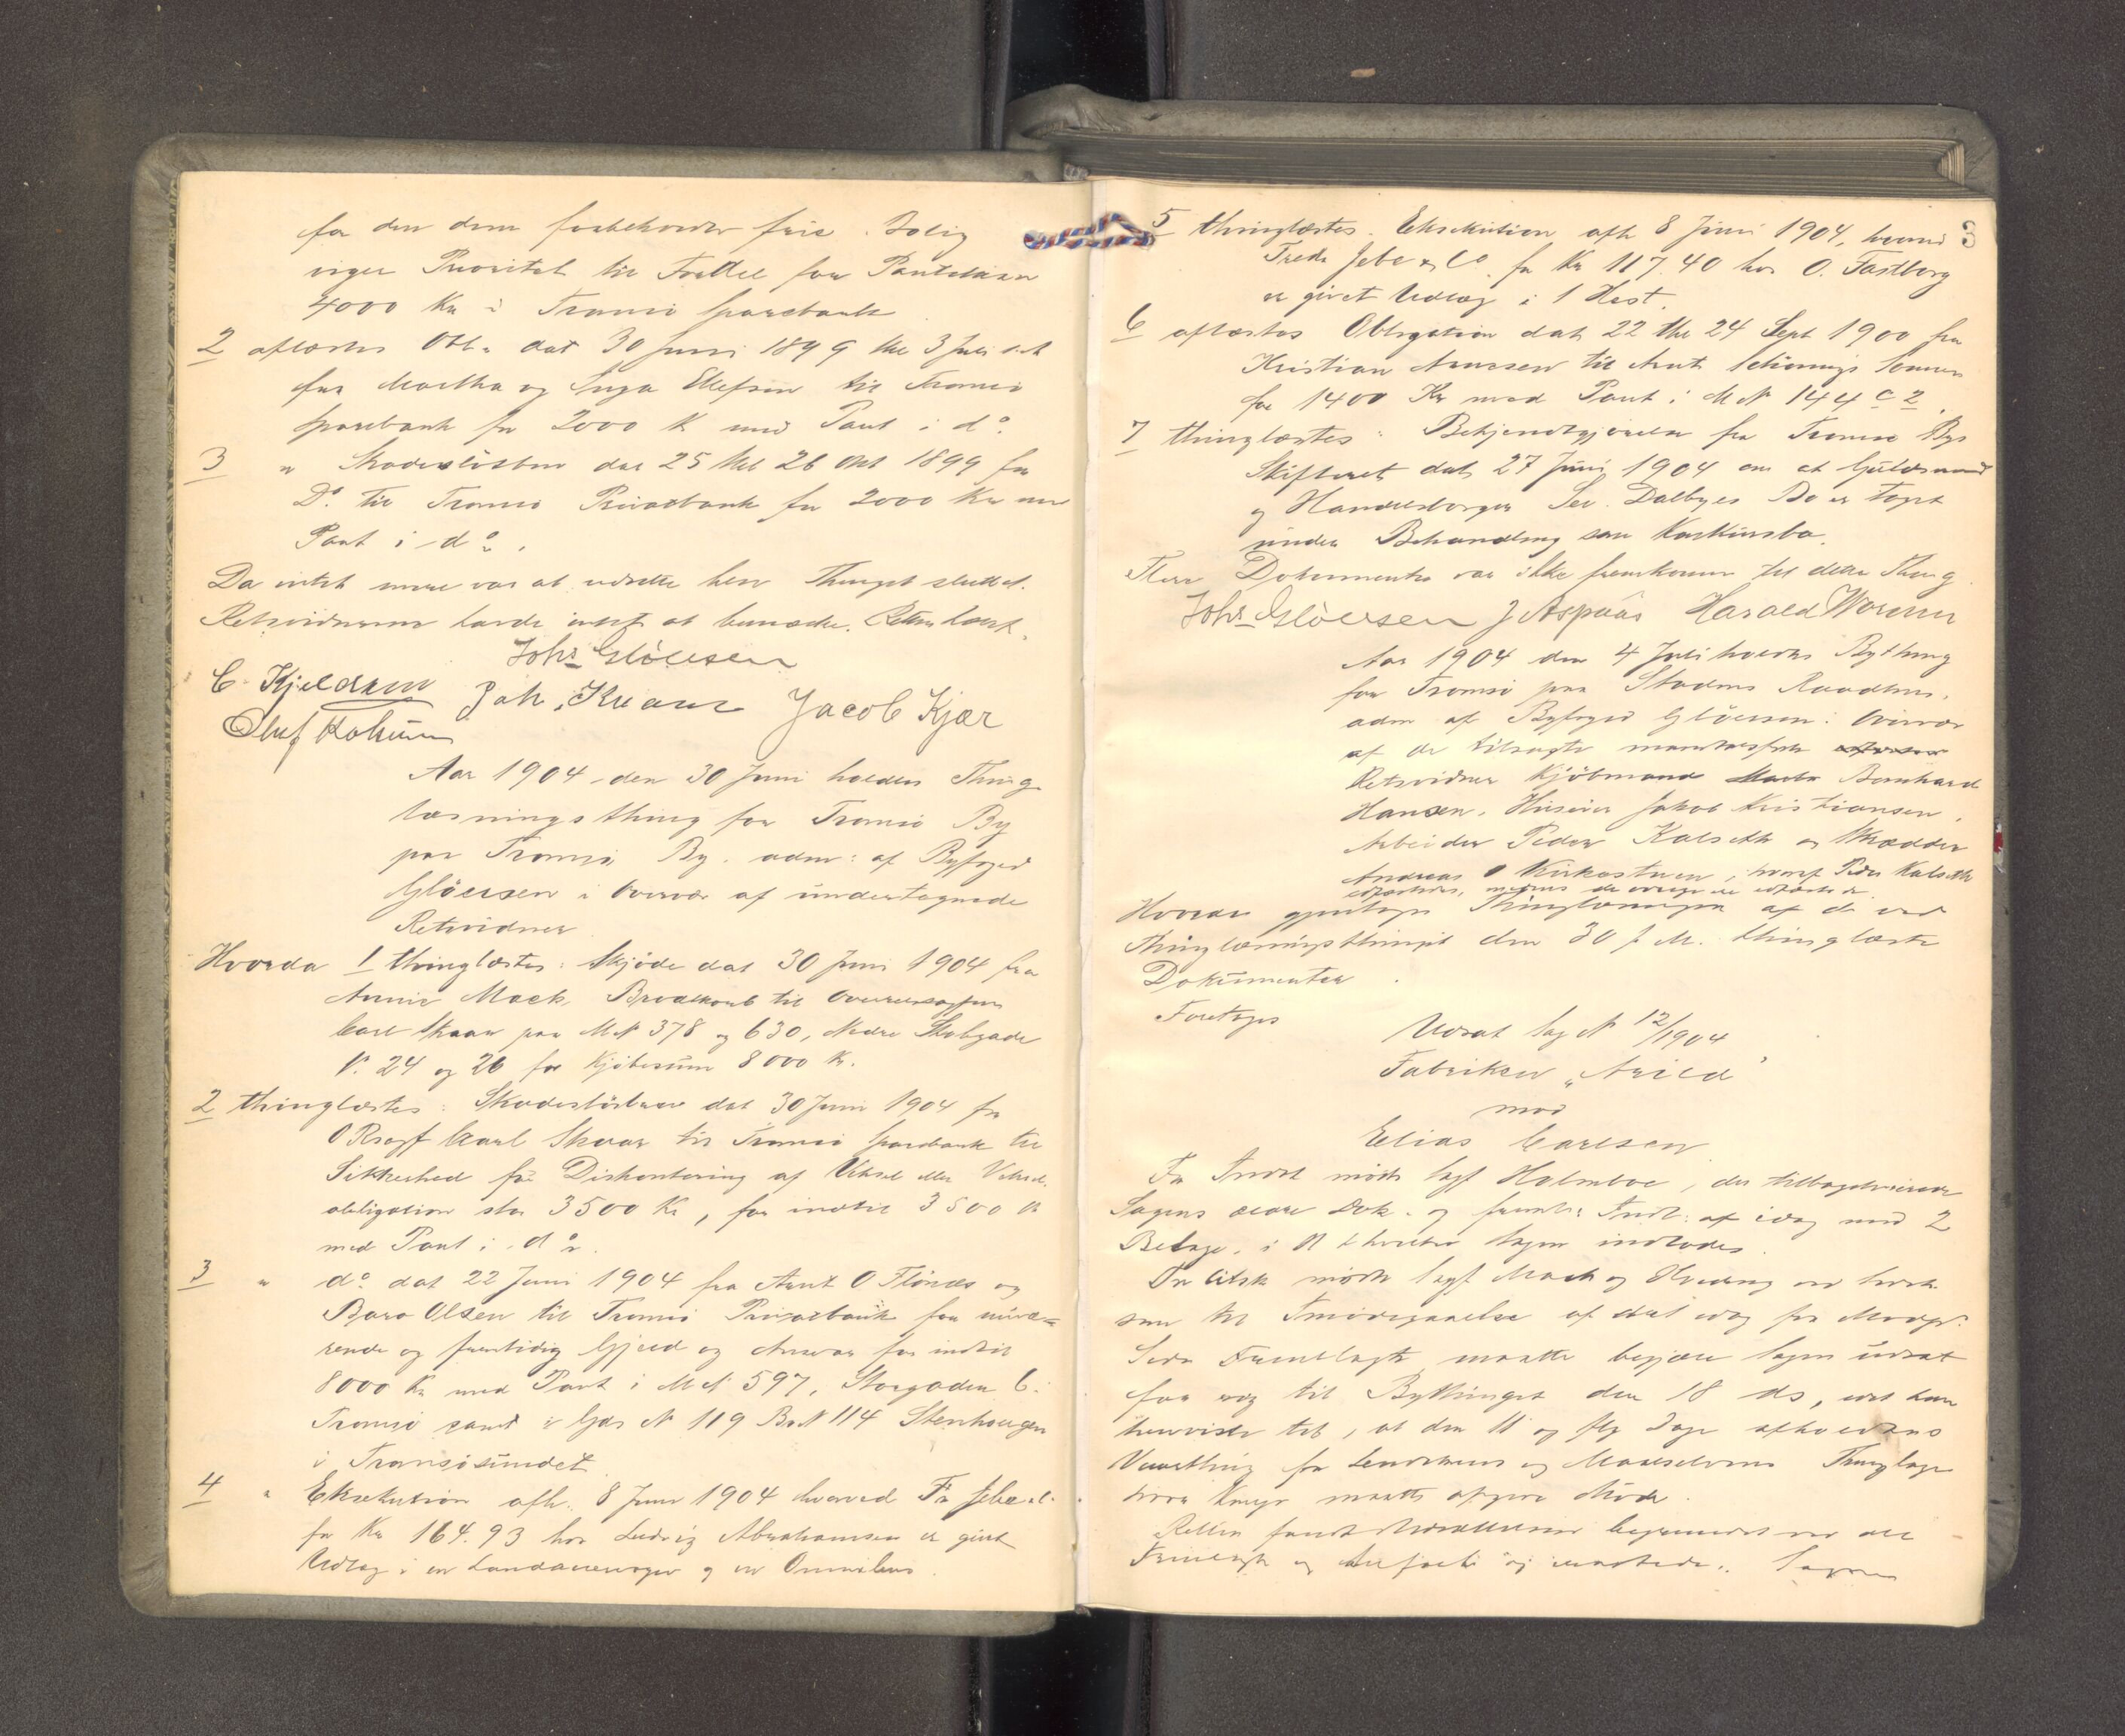 for den dem forbeholdte frie Bolig
viger Prioritet til Fordel for Pantelaan
4000 Kr i Tromsø Sparebank
2 aflæstes Obl. dat 30 Juni 1899 thl 3 Juli
fra Martha og Inga Ellefsen til Tromsø
Sparebank for 2000 K med Pant i do.
3 " Skadesløsbrev dat 25 thl 26 Okt 1899 fra
Do. til Tromsø Privatbank for 2000 Kr med
Pant i do.
Da intet mere var at udrette blev Thinget sluttet.
Retsvidnerne havde intet at bemærke.
Johs Gløersen
C. Kjeldsen Joh. Jacob Kjær
Oluf
Aar 1904 den 30 Juni holdtes Thing-
læsningsthing for Tromsø By
paa Tromsø By. adm: af Byfoged
Gløersen i Overvær af undertegnede
Retsvidner
Hvorda 1 thinglæstes: Skjøde dat 30 Juni 1904 fra
Annie Mack til Overretssagfører
Carl Skaar paa M N 378 og 630, Nedre
N. 24 og 26 for Kjøbesum 8000 Kr.
2 thinglæstes: Skadesløsbrev dat 30 Juni 1904 fra
ORsagf Carl Skaar til Tromsø Sparebank til
Sikkerhed for Diskontering af Veksel eller Veksel-
obligation stor 3500 Kr, for indtil 3500 Kr
med Pant i do.
3 " do dat 22 Juni 1904 fra Arnt O Flønes og
Olsen til Tromsø Privatbank for nuvæ=
rende og fremtidig Gjæld og Ansvar for indtil
8000 Kr med Pant i M N 597, Storgaden 6.
Tromsø samt i Gds N 119 Br N 114 Stenhougen
i Tromsøsundet
4 " Eksekution afh. 8 Juni 1904 hvorved Fr Jebe
for Kr 164.93 hos Ludvig Abrahamsen er givet
Udlæg i en Landauervogn og en Omnibus.
3
5 thinglæstes. Eksekution afh 8 Juni 1904, hvorved
Fredr Jebe & Co. for Kr 117.40 hos O. Fastborg
er givet Udlæg i 1 Hest.
6 aflæstes Obligation dat 22 thl 24 Sept 1900 fra
Kristian til Arnt Schønnings Sønner
for 1400 Kr med Pant i M N 144 c 2.
7 thinglæstes: Bekjendtgjørelse fra Tromsø Bys
Skifteret dat 27 Juni 1904 om at Guldsmed
og Handelsborger Dalbyes Bo er taget
under Behandling som Konkursbo.
Flere Dokumenter var ikke fremkomne til dette Thing.
Johs Gløersen J Aspaas Harald
Aar 1904 den 4 Juli holdtes Bything
for Tromsø paa Stadens Raadhus,
adm af Byfoged Gløersen i Overvær
af de tilsagte
Retsvidner Kjøbmand Bernhard
Hansen, Huseier Jakob Kristiansen,
Arbeider Peder Kalseth og Skrædder
Andreas O Kirkestuen, hvoraf Peder Kalseth
edfæstedes, medens de øvrige er edfæstede.
Hvorda gjentoges Thinglæsningen af de ved
Thinglæsningsthinget den 30 f. M. thinglæste
Dokumenter.
Foretoges
Udsat Sag N 12/1904
Fabriken "Arild"
mod
Elias Carlsen
For Indst mødte Sagf Holmboe, der tilbageleverede
Sagens ældre Dok. og freml. Indl: af idag med 2
Bilage, i H t hvortil Sagen indlodes.
For Citsk mødte Sagf Mack og
som til Imødegaaelse af det idag fra Modp.
Side Fremlagte maatte begjære Sagen udsat
for sig til Bythinget den 18 ds, idet han
henviste til, at den 11 og flg Dage afholdtes
Vaarthing for Lenvikens og Maalselvens Thinglage
hvor Komp maatte afgive Møde.
Retten fandt Udsættelsen begrundet ved det
Sagen